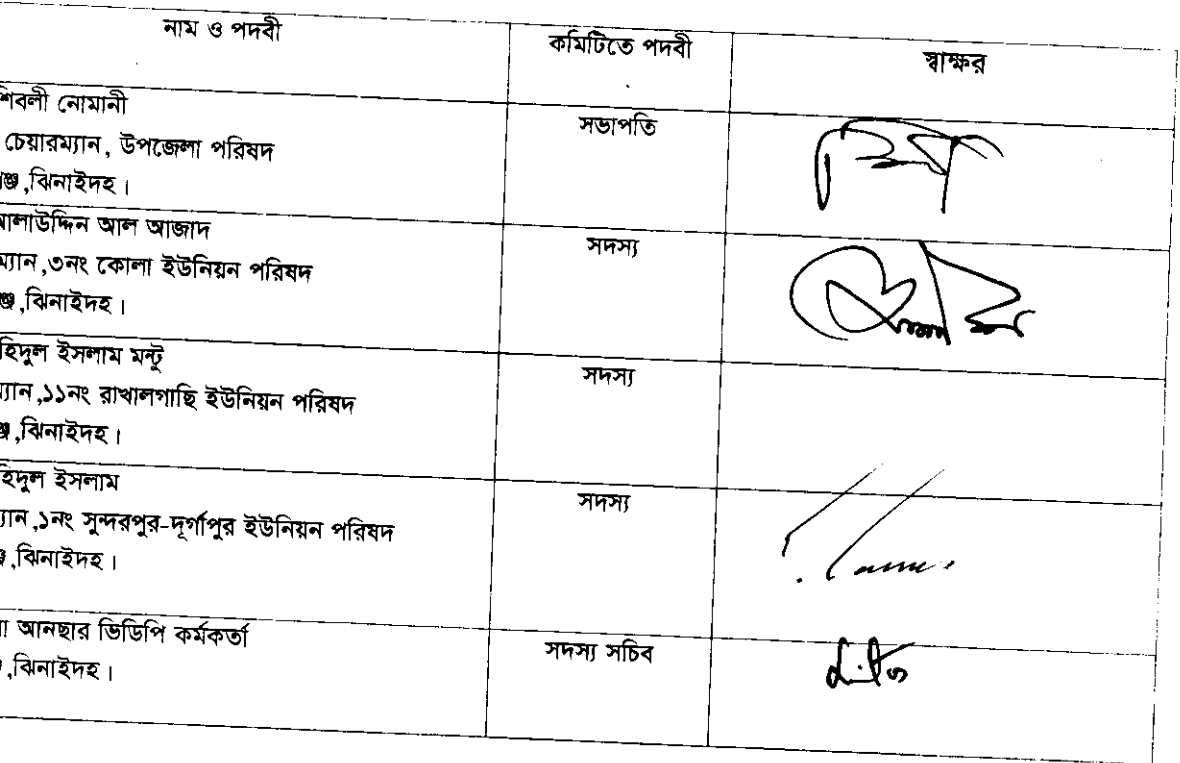 নাম ও পদবী
কমিটিতে পদবী
স্বাক্ষর
শিবলী নোমানী
চেয়ারম্যান, উপজেলা পরিষদ
ঞ্জ,ঝিনাইদহ।
সভাপতি
আলাউদ্দিন আল আজাদ
ম্যান,৩নং কোলা ইউনিয়ন পরিষদ
ঞ্জ,ঝিনাইদহ।
সদস্য
হিদুল ইসলাম মন্টু
ম্যান,১১নং রাখালগাছি ইউনিয়ন পরিষদ
ঞ্জ,ঝিনাইদহ।
সদস্য
হিদুল ইসলাম
ম্যান,১নং সুন্দরপুর-দূর্গাপুর ইউনিয়ন পরিষদ
ঞ্জ,ঝিনাইদহ।
সদস্য
আনছার ভিডিপি কর্মকর্তা
,ঝিনাইদহ।
সদস্য সচিব